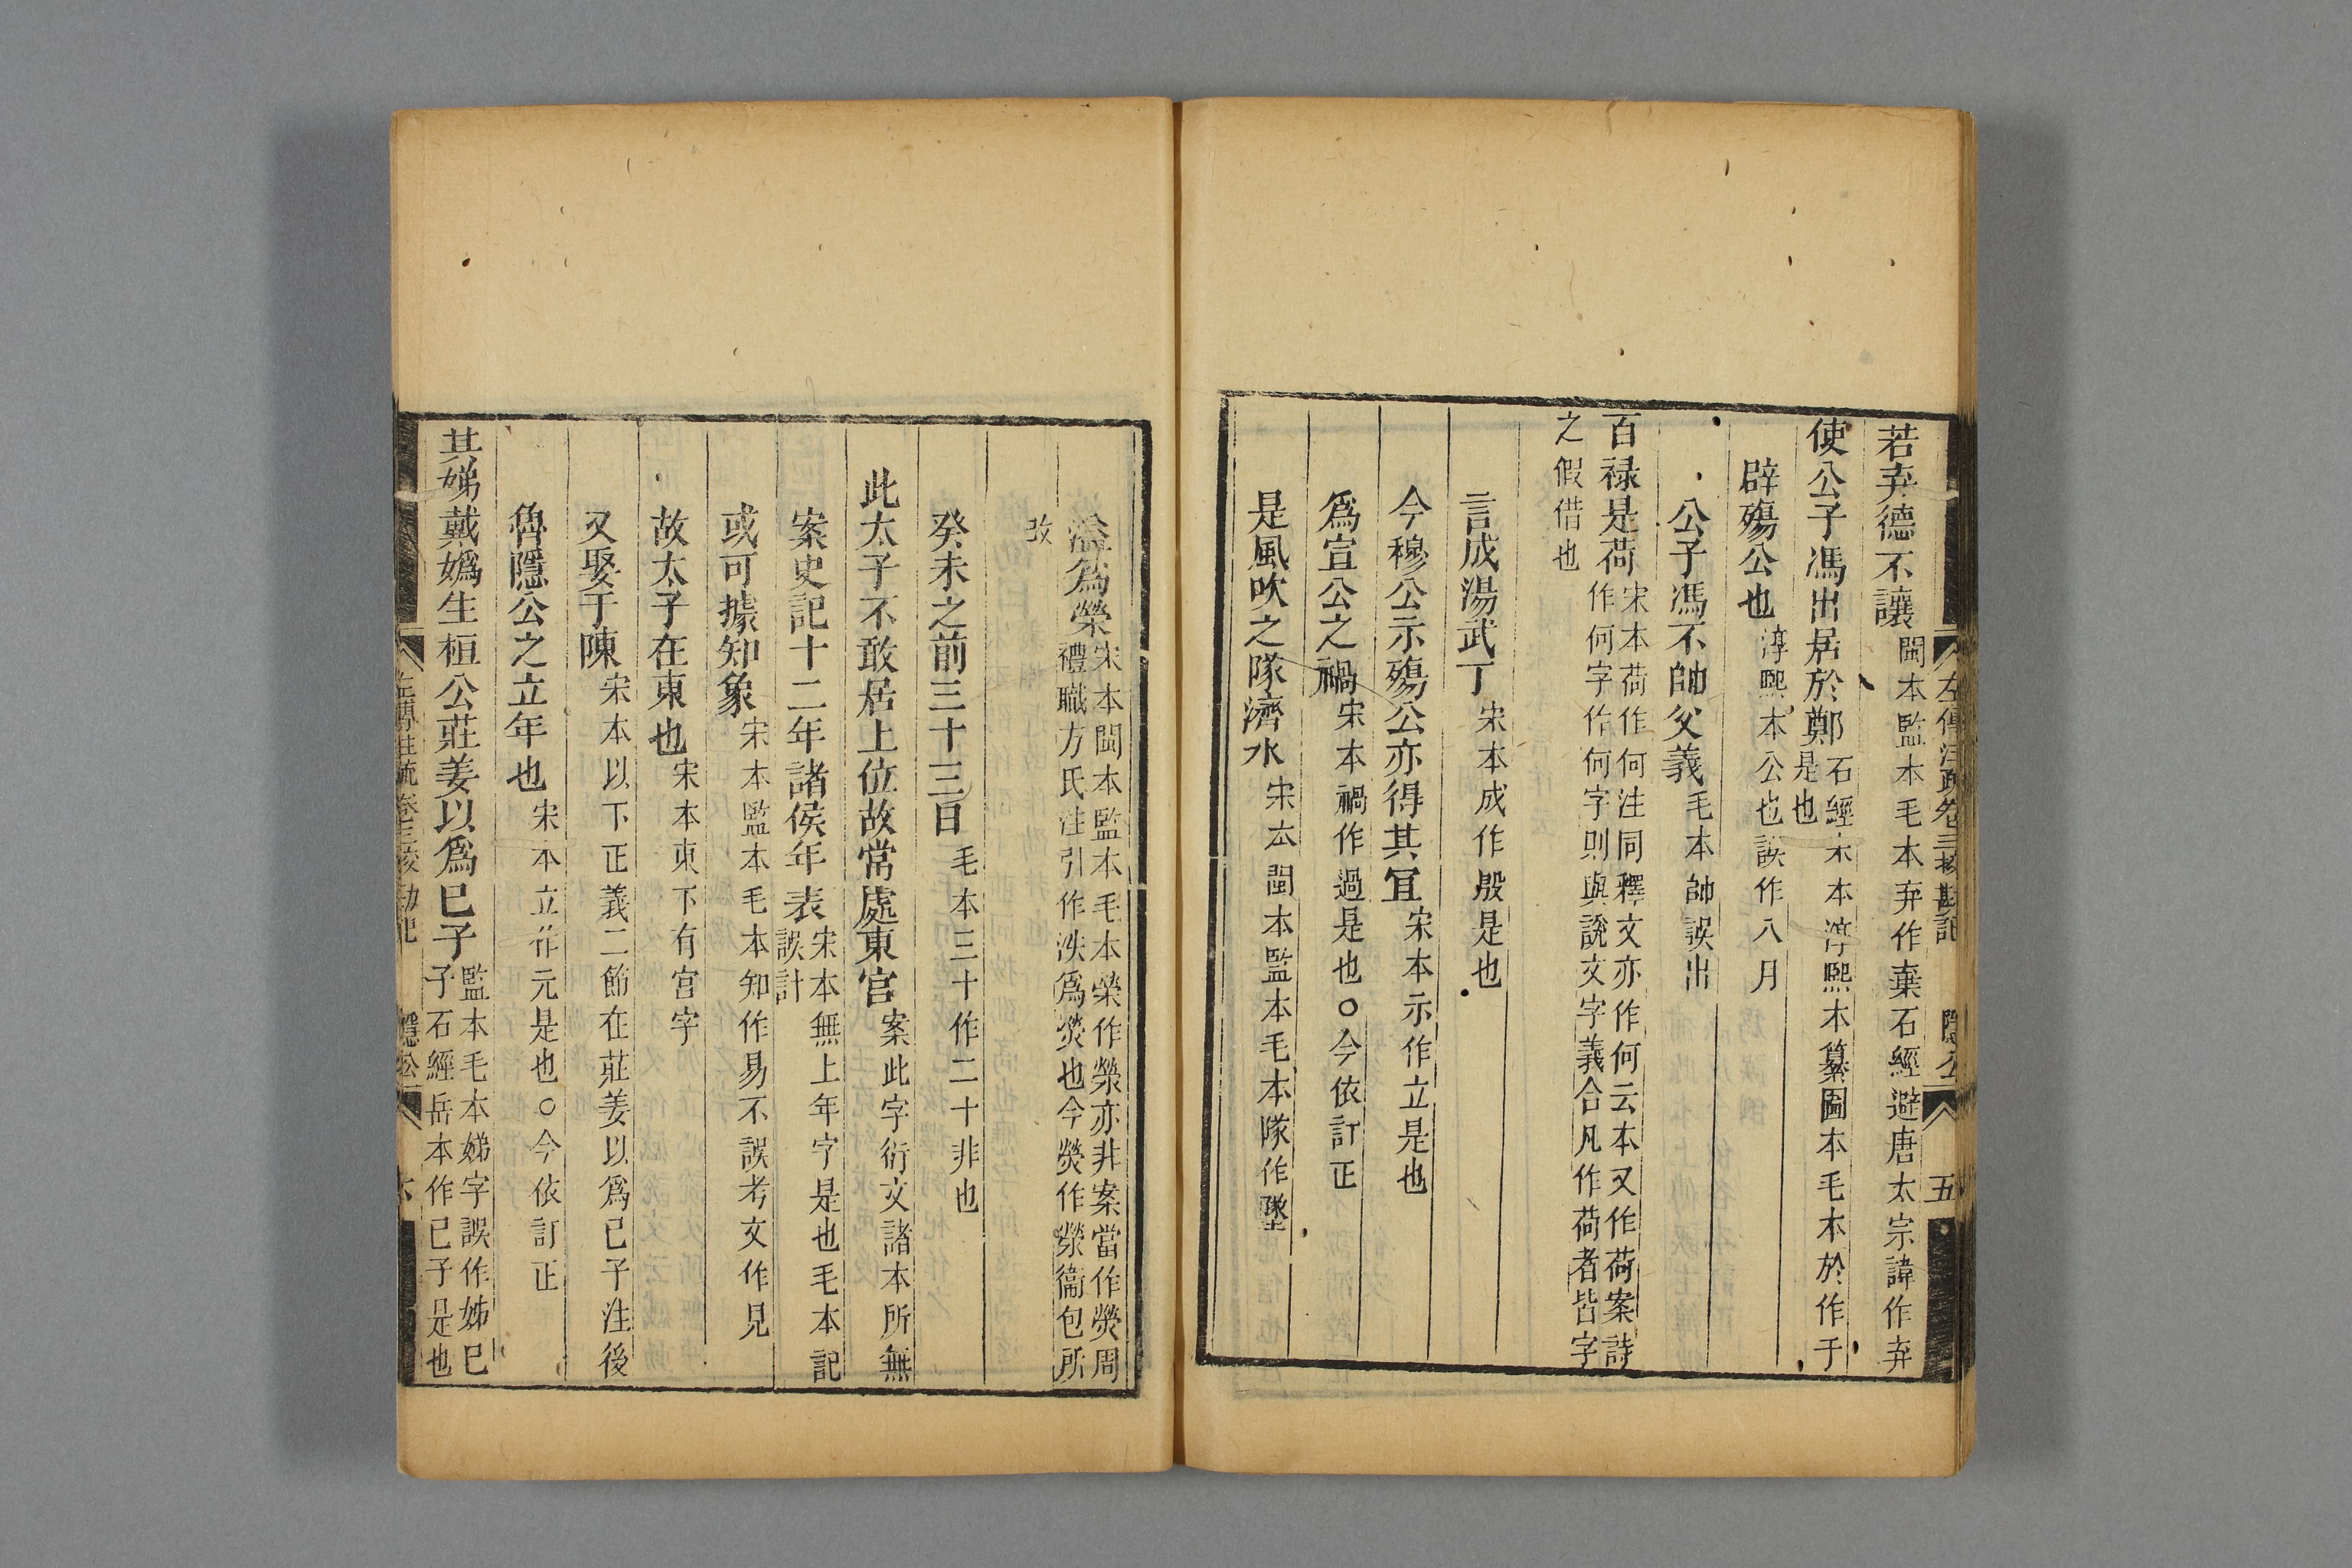 左傳注疏卷三挍勘記 隱公 五
若弃德不讓 閩本監本毛本弃作棄石經避唐太宗諱作弃
使公子馮出居於鄭 石經宋本淳熙本纂圖本毛本於作于
是也
辟殤公也 淳熙本公也誤作八月
公子馮不帥父義 毛本帥誤出
百禄是荷 宋本荷作何注同釋文亦作何云本又作荷案詩
作何字作何字則與說文字義合凡作荷者皆字
之假借也
言成湯武丁 宋本成作殷是也
今穆公示殤公亦得其宜 宋本示作立是也
爲宣公之禍 宋本禍作過是也○今依訂正
是風吹之隊濟水 宋本閩本監本毛本隊作墜
溢爲榮 宋本閩本監本毛本榮作滎亦非案當作熒周
禮職方氏注引作泆爲熒也今熒作滎衞包所
改
癸未之前三十三日 毛本三十作二十非也
此太子不敢居上位故常處東宫 案此字衍文諸本所無
案史記十二年諸侯年表 宋本無上年字是也毛本記
誤計
或可據知象 宋本監本毛本知作易不誤考文作見
故太子在東也 宋本東下有宫字
又娶于陳 宋本以下正義二節在莊姜以爲己子注後
魯隱公之立年也 宋本立作元是也○今依訂正
其娣戴嬀生桓公莊姜以爲巳子 監本毛本娣字誤作姊巳
子石經岳本作己子是也
左傳注疏卷三挍勘記 隱公 六